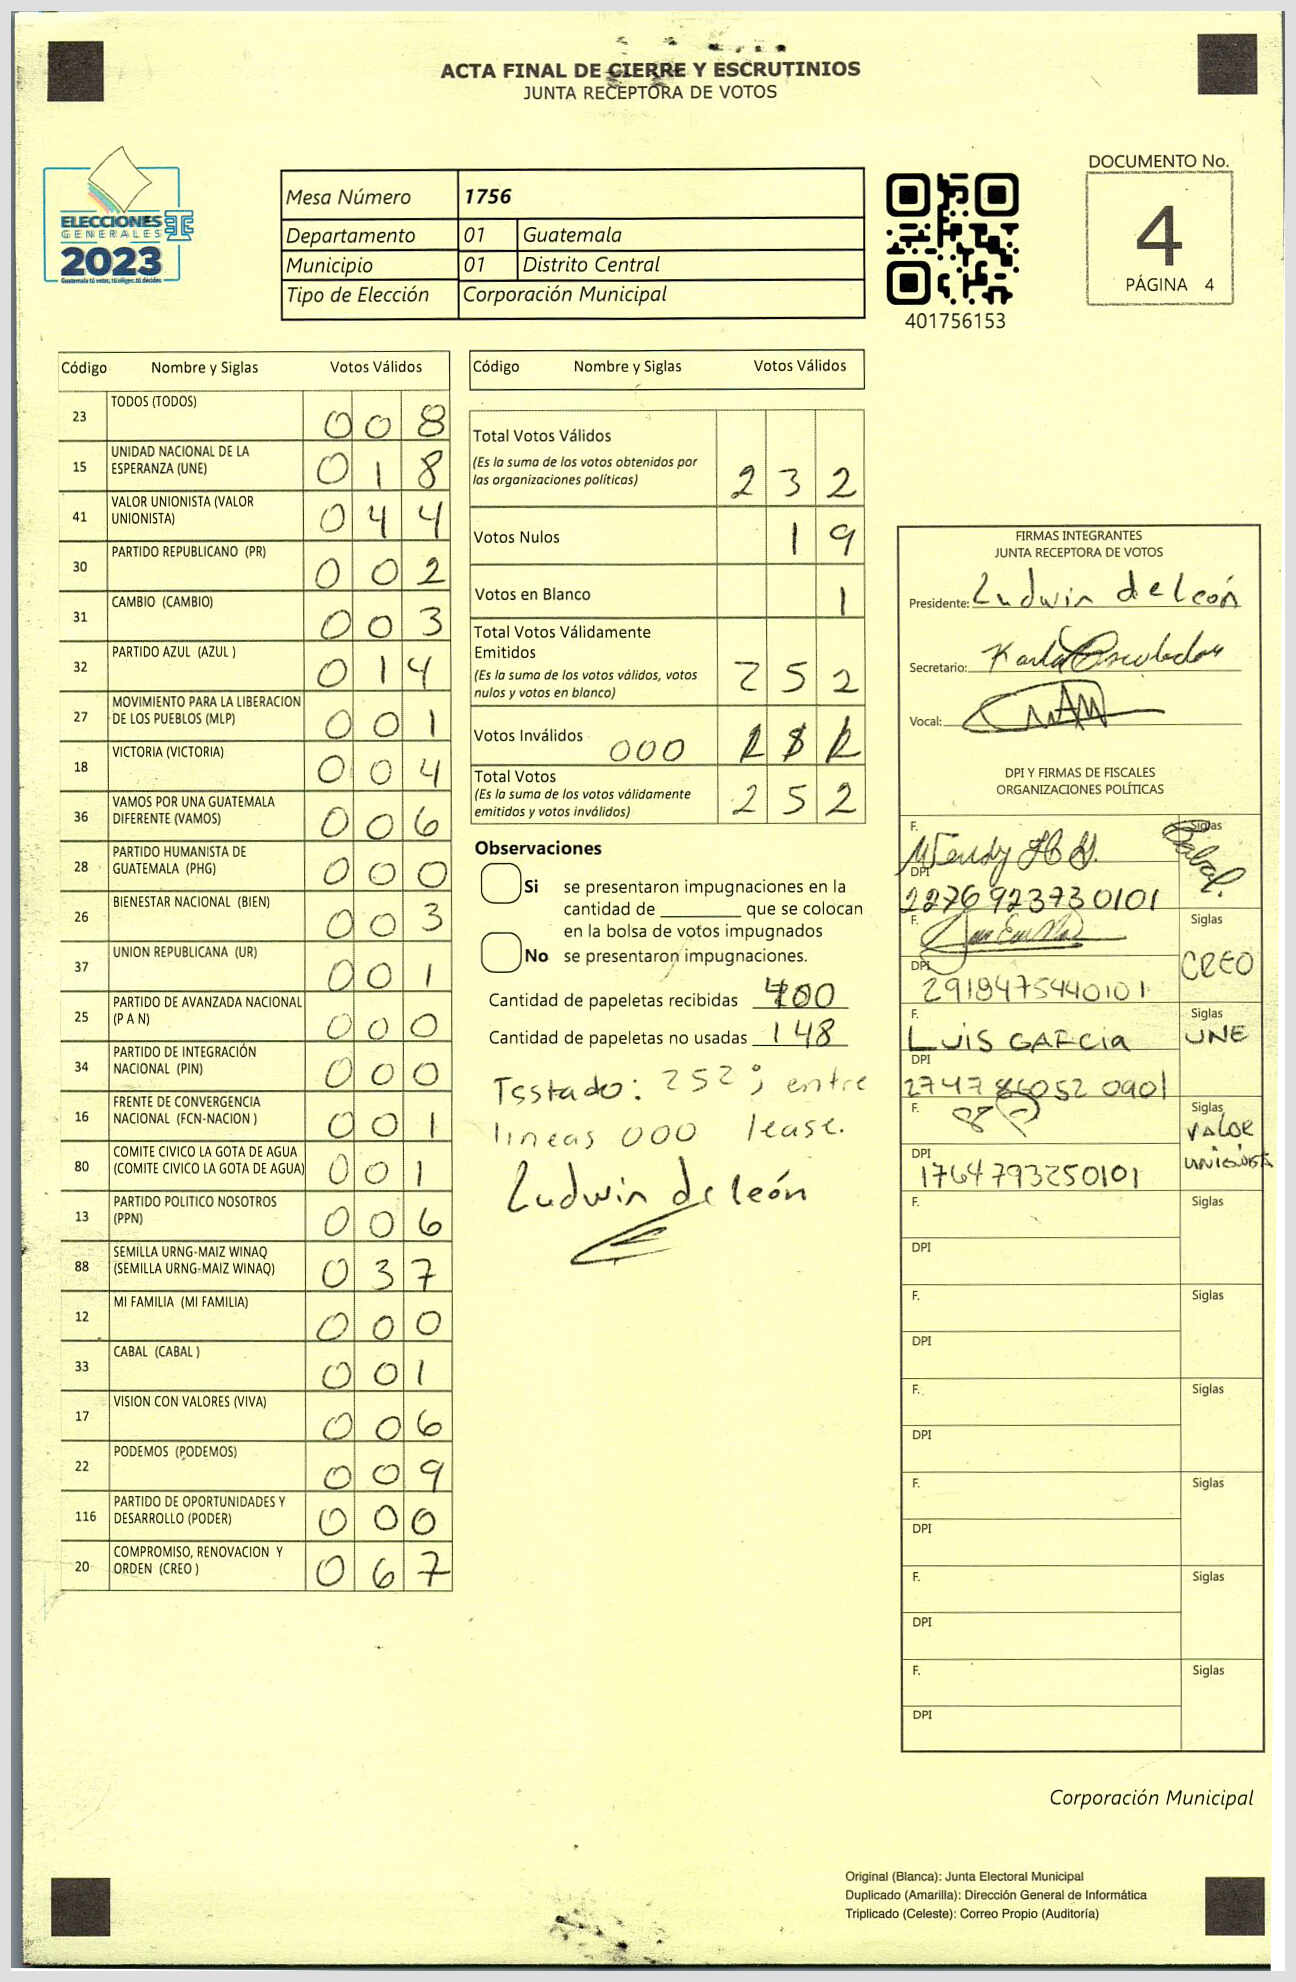 ACTA FINAL DE CIERRE Y ESCRUTINIOS
JUNTA RECEPTORA DE VOTOS
ELECCIONES
GENERALES
2023
Guatemala tú votas, tú eliges, tú decides
Mesa Número 1756
Departamento 01 Guatemala
Municipio 01 Distrito Central
Tipo de Elección Corporación Municipal
401756153
DOCUMENTO No.
4
PÁGINA 4
Código Nombre y Siglas Votos Válidos
23 TODOS (TODOS) 0 0 8
15 UNIDAD NACIONAL DE LA
ESPERANZA (UNE) 0 1 8
41 VALOR UNIONISTA (VALOR
UNIONISTA) 0 4 4
30 PARTIDO REPUBLICANO (PR) 0 0 2
31 CAMBIO (CAMBIO) 0 0 3
32 PARTIDO AZUL (AZUL ) 0 1 4
27 MOVIMIENTO PARA LA LIBERACION
DE LOS PUEBLOS (MLP) 0 0 1
18 VICTORIA (VICTORIA) 0 0 4
36 VAMOS POR UNA GUATEMALA
DIFERENTE (VAMOS) 0 0 6
28 PARTIDO HUMANISTA DE
GUATEMALA (PHG) 0 0 0
26 BIENESTAR NACIONAL (BIEN) 0 0 3
37 UNION REPUBLICANA (UR) 0 0 1
25 PARTIDO DE AVANZADA NACIONAL
(P A N) 0 0 0
34 PARTIDO DE INTEGRACIÓN
NACIONAL (PIN) 0 0 0
16 FRENTE DE CONVERGENCIA
NACIONAL (FCN-NACION ) 0 0 1
80 COMITE CIVICO LA GOTA DE AGUA
(COMITE CIVICO LA GOTA DE AGUA) 0 0 1
13 PARTIDO POLITICO NOSOTROS
(PPN) 0 0 6
88 SEMILLA URNG-MAIZ WINAQ
(SEMILLA URNG-MAIZ WINAQ) 0 3 7
12 MI FAMILIA (MI FAMILIA) 0 0 0
33 CABAL (CABAL ) 0 0 1
17 VISION CON VALORES (VIVA) 0 0 6
22 PODEMOS (PODEMOS) 0 0 9
116 PARTIDO DE OPORTUNIDADES Y
DESARROLLO (PODER) 0 0 0
20 COMPROMISO, RENOVACION Y
ORDEN (CREO ) 0 6 7
Código Nombre y Siglas Votos Válidos
Total Votos Válidos
(Es la suma de los votos obtenidos por
las organizaciones políticas) 2 3 2
Votos Nulos 1 9
Votos en Blanco 1
Total Votos Válidamente
Emitidos
(Es la suma de los votos válidos, votos
nulos y votos en blanco) 2 5 2
Votos Inválidos 000
Total Votos
(Es la suma de los votos válidamente
emitidos y votos inválidos) 2 5 2
Observaciones
Si se presentaron impugnaciones en la
cantidad de ________ que se colocan
en la bolsa de votos impugnados
No se presentaron impugnaciones.
Cantidad de papeletas recibidas 400
Cantidad de papeletas no usadas 148
Tsstado: 252; entre
lineas 000 lease.
Ludwin de león
FIRMAS INTEGRANTES
JUNTA RECEPTORA DE VOTOS
Presidente: Ludwin de León
Secretario: Karla
Vocal:
DPI Y FIRMAS DE FISCALES
ORGANIZACIONES POLÍTICAS
F. Wendy Siglas Cabal.
DPI 2276923730101
F. Siglas CREO
DPI 2918475440101
F. LUIS GARCIA Siglas UNE
DPI 2747 86052 0901
F. Siglas VALOR
UNIONISTA
DPI 1764793250101
F. Siglas
DPI
F. Siglas
DPI
F. Siglas
DPI
F. Siglas
DPI
F. Siglas
DPI
F. Siglas
DPI
Corporación Municipal
Original (Blanca): Junta Electoral Municipal
Duplicado (Amarilla): Dirección General de Informática
Triplicado (Celeste): Correo Propio (Auditoría)